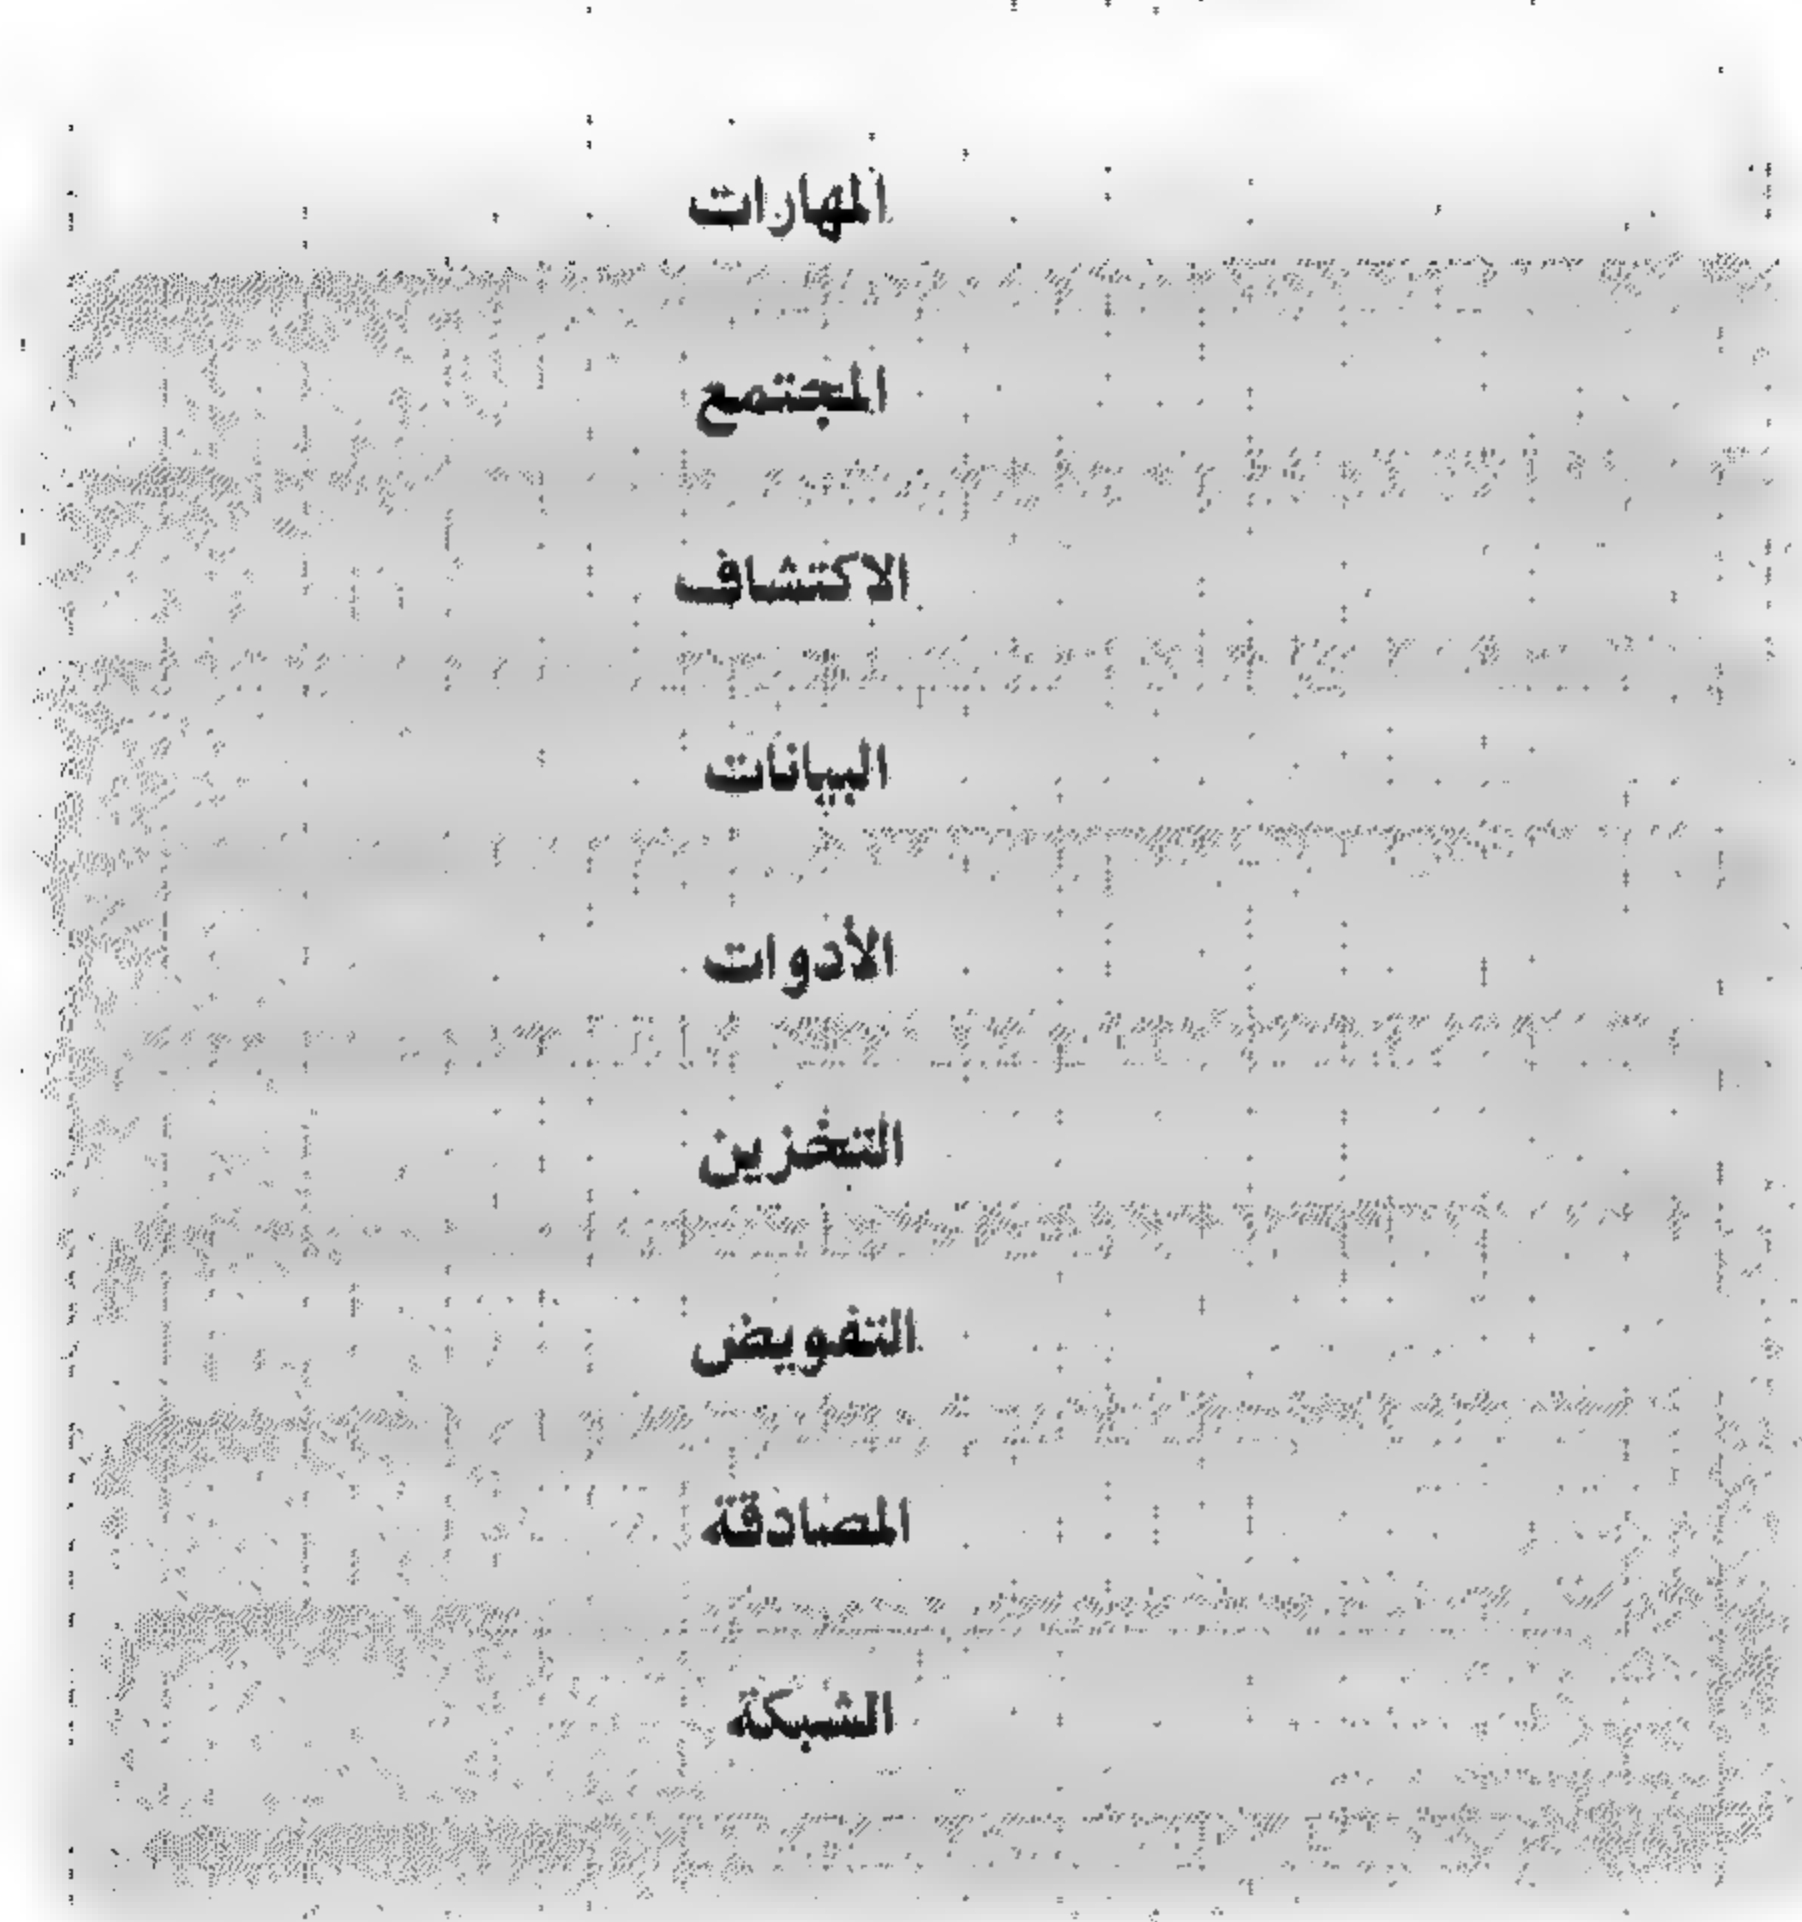 المهارات
المجتمع
الاكتشاف
البيانات
الأدوات
التخزين
التفويض
المصادقة
الشبكة